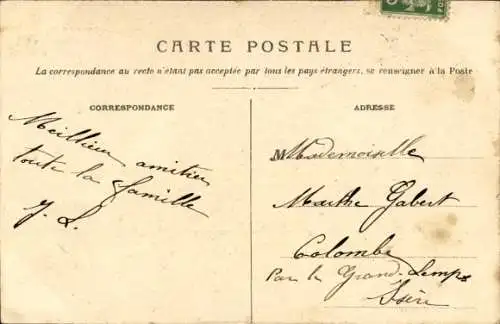 CARTE POSTALE
La correspondance au recto n'étant pas acceptée par tous les pays étrangers, se renseigner à la Poste
CORRESPONDANCE
Meilleures amitiés
toute la famille
J. L.
ADRESSE
M Mademoiselle
Marthe Gabert
Colombe
Par le Grand-Lemps
Isère